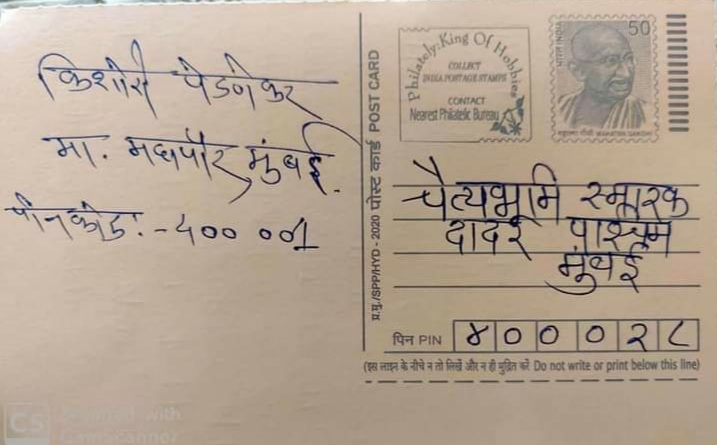 किशोरी पेडणेकर
मा. महापौर, मुंबई.
पीनकोड. - 400 001
प्र.मु./SPP/HYD - 2020 पोस्ट कार्ड POST CARD
Philately: King Of Hobbies
COLLECT
INDIA POSTAGE STAMPS
CONTACT
Nearest Philatelic Bureau
भारत INDIA
50
महात्मा गाँधी MAHATMA GANDHI
चैत्यभूमि स्मारक
दादर पश्चिम
मुंबई
पिन PIN ४०००२८
(इस लाइन के नीचे न तो लिखें और न ही मुद्रित करें Do not write or print below this line)
CS Scanned with
CamScanner